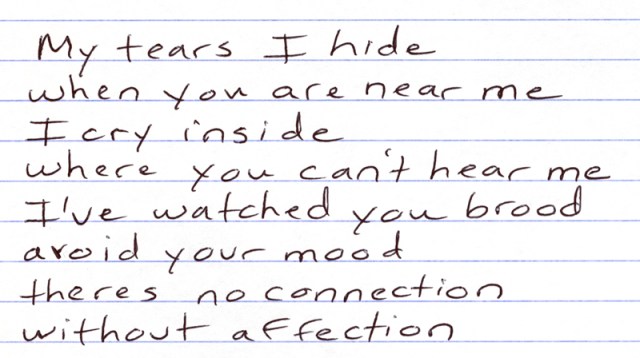 My tears I hide
when you are near me
I cry inside
where you can't hear me
I've watched you brood
avoid your mood
theres no connection
without affection